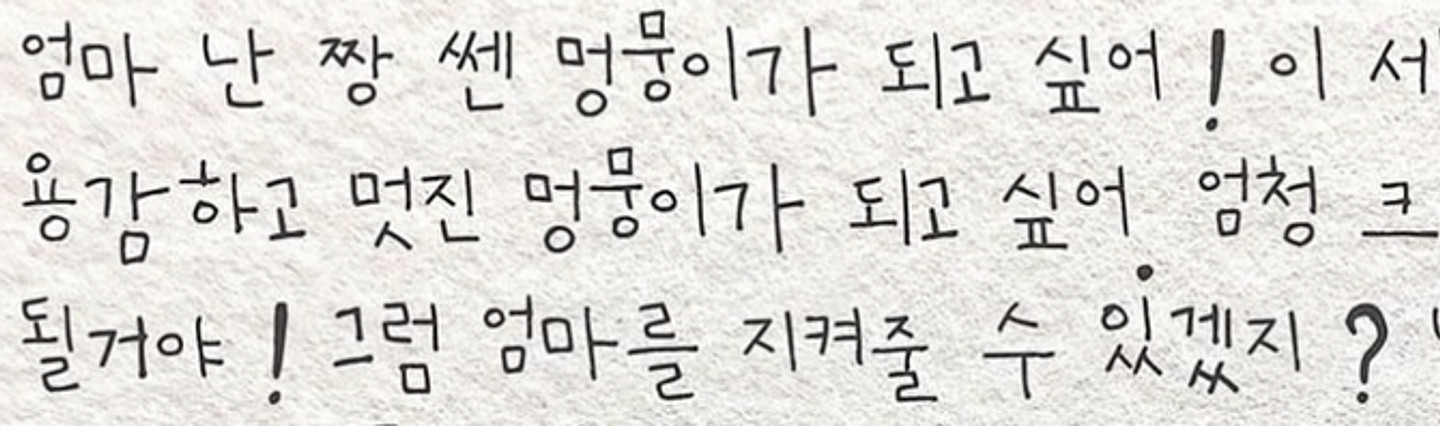 엄마 난 짱 쎈 멍뭉이가 되고 싶어! 이
용감하고 멋진 멍뭉이가 되고 싶어. 엄청
될거야! 그럼 엄마를 지켜줄 수 있겠지?